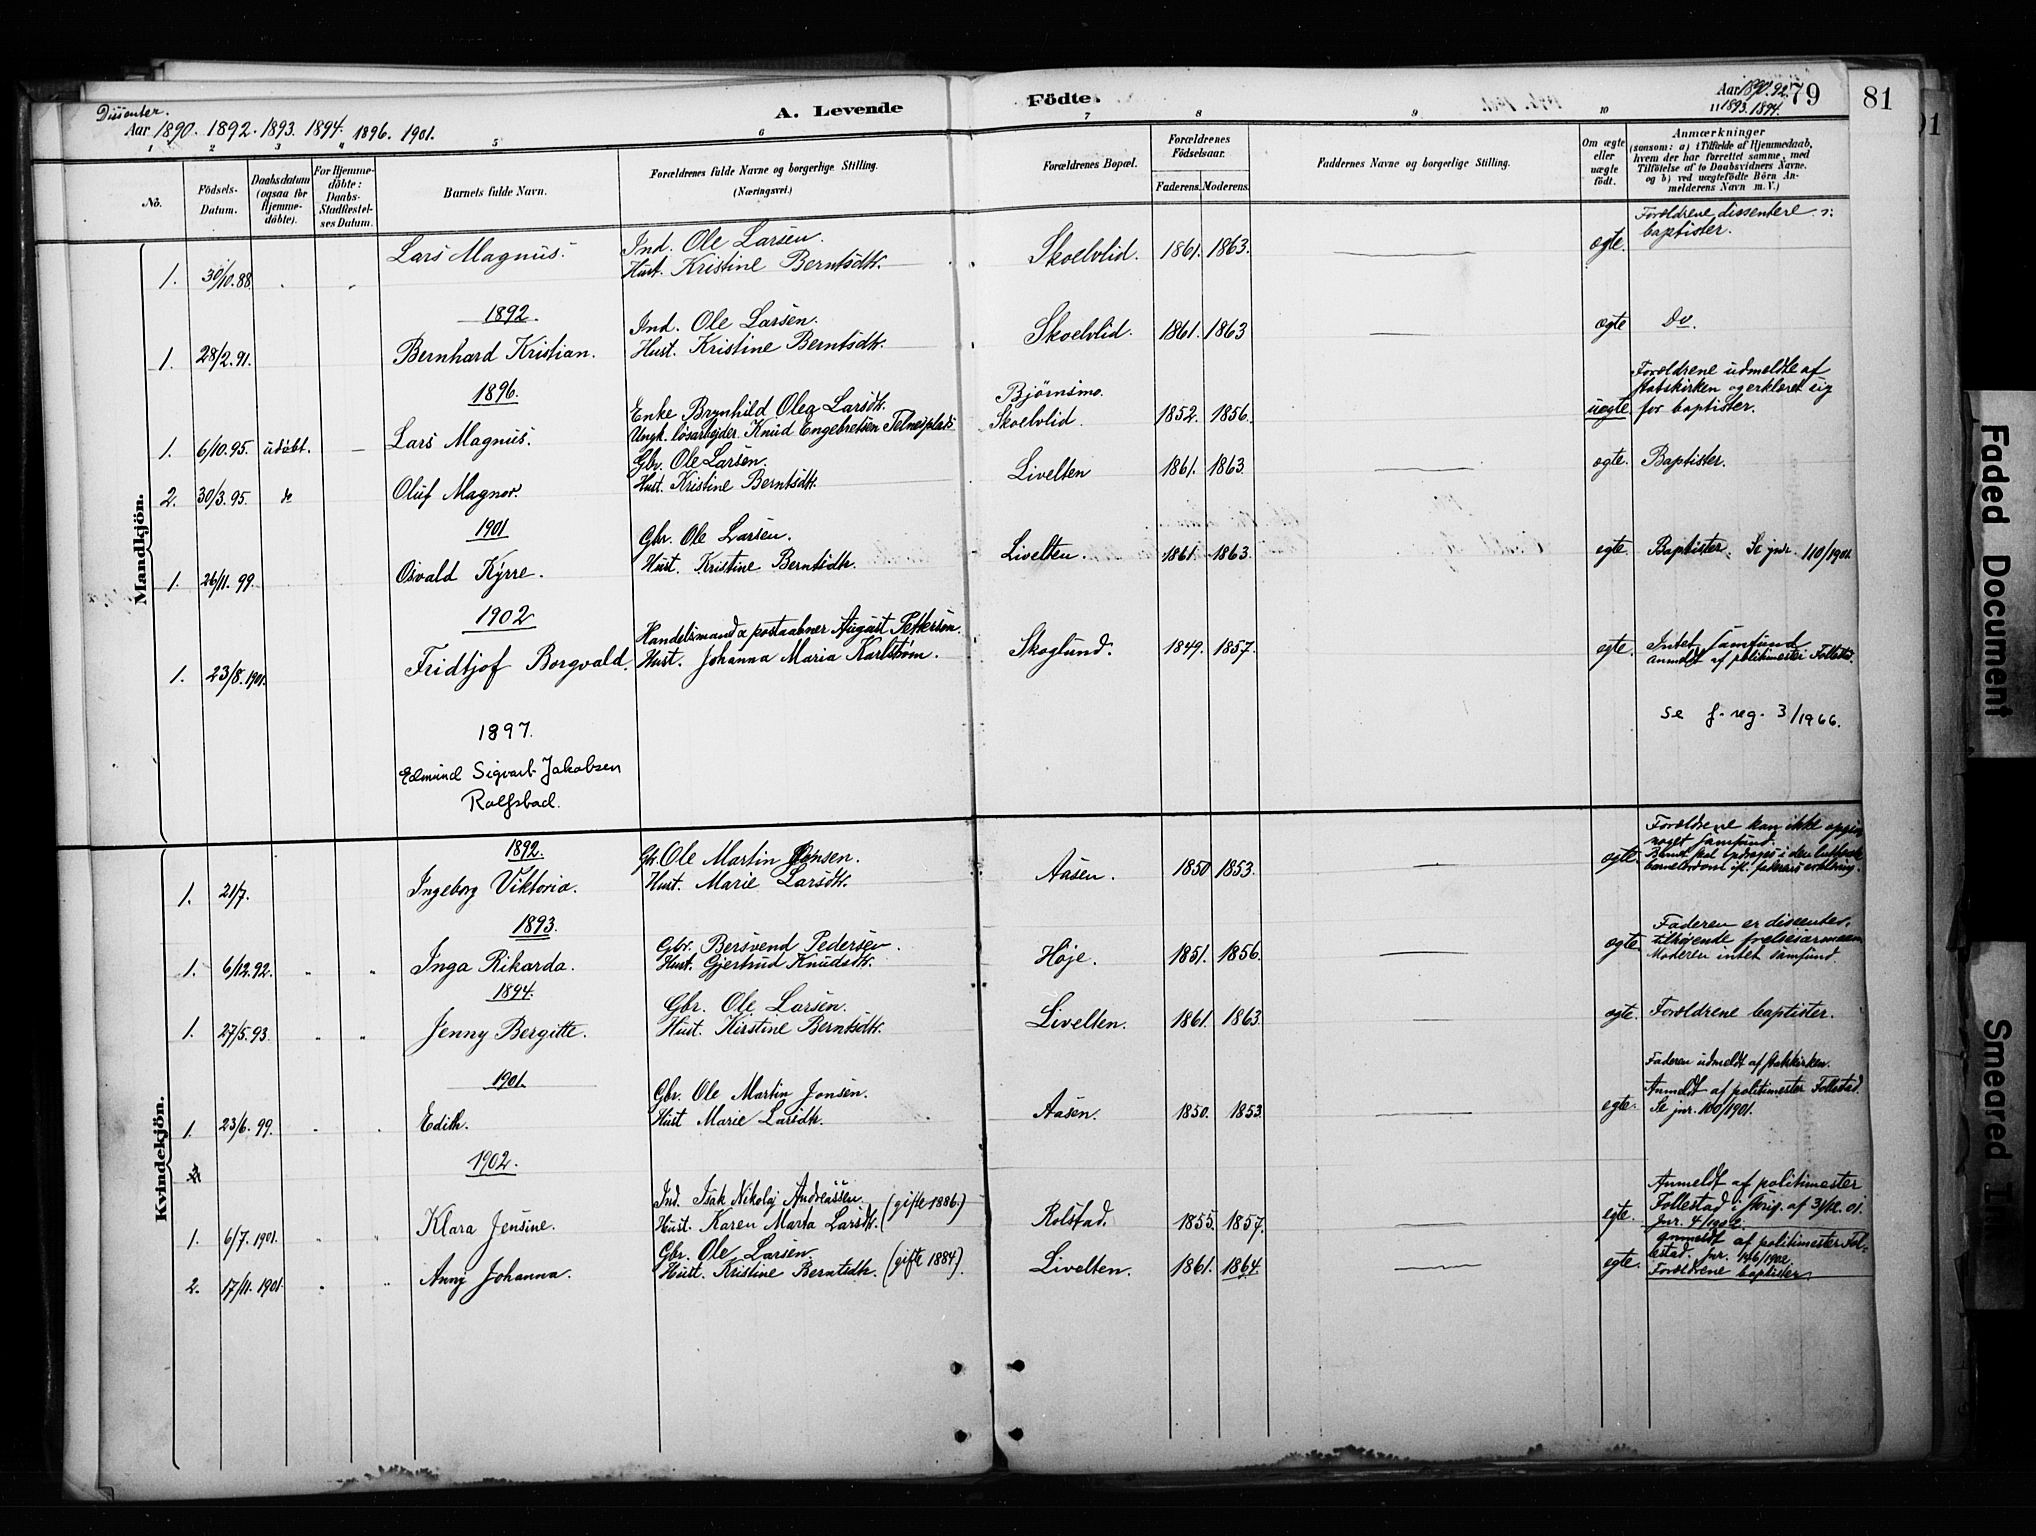 Dissenter.
Aar 1890. 1892. 1893. 1894. 1896. 1901.
A. Levende Födte.
Aar 1890. 92.
1893. 1894.
79
81
1 2 3 4 5 6 7 8 9 10 11
No.
Födsels-Datum.
Daabsdatum (ogsaa for Hjemme-döbte).
For Hjemme-döbte: Daabs-Stadfæstel-ses Datum.
Barnets fulde Navn.
Forældrenes fulde Navne og borgerlige Stilling.
(Næringsvei.)
Forældrenes Bopæl.
Forældrenes Födselsaar.
Faderens. Moderens.
Faddernes Navne og borgerlige Stilling.
Om ægte eller uægte födt.
Anmærkninger
(saasom: a) i Tilfælde af Hjemmedaab, hvem der har forrettet samme, med Tilföielse af to Daabsvidners Navne. og b) ved uægtefödte Börn An-melderens Navn m. V.)
Mandkjön.
1. 30/10.88. Lars Magnus. Ind. Ole Larsen. Skoelvlid. 1861. 1863. ægte. Forældrene dissentere
Hust. Kristine Berntsdtr. baptister.
1892.
1. 28/2.91. Bernhard Kristian. Ind. Ole Larsen. Skoelvlid. 1861. 1863 ægte Do.
Hust. Kristine Berntsdtr.
1896.
1. 6/10.95. udöbt. Lars Magnus. Enke Brynhild Olea Larsdtr. Bjørnsmo. Skoelvlid 1852. 1856. uægte Forældrene udmeldte af
Ungk. løsarbejder Knud Engebretsen Telnesplads statskirken og erklæret sig
for baptister.
2. 30/3.95. do Oluf Magnor. Gbr. Ole Larsen. Livelten 1861. 1863. ægte. Baptister.
Hust. Kristine Berntsdtr.
1901
1. 26/11.99. Osvald Kyrre. Gbr. Ole Larsen. Livelten. 1861. 1863. egte Baptister. Se jnr. 110/1901.
Hust. Kristine Berntsdtr.
1902
1. 23/8.1901. Fridtjof Borgvald. Handelsmand & postaabner August Petterson. Skoglund. 1849. 1857. egte. Intet samfund
Hust. Johanna Maria Karlstrøm. anmeldt af politimester Follestad.
1897.
Edmund Sigvart Jakobsen
Rolfsbad.
se f. reg. 3/1966.
Kvindekjön.
1892.
1. 21/7. Ingeborg Viktoria. Gbr. Ole Martin Jonsen. Aasen. 1850 1853. ægte. Forældrene kan ikke opgive
Hust. Marie Larsdtr. noget samfund.
1893.
1. 6/12.92. Inga Rikarda. Gbr. Bersvend Pedersen. Høje. 1851. 1856. ægte. Faderen er dissenter,
Hust. Gjertrud Knudsdtr. tilhøjende frelsesarmeen
Moderen intet samfund.
1894.
1. 27/5.93. Jenny Bergitte. Gbr. Ole Larsen. Livelten. 1861. 1863. ægte. Forældrene baptister.
Hust. Kirstine Berntsdtr.
1901.
1. 23/6.99. Edith. Gbr. Ole Martin Jonsen. Aasen. 1850. 1853. egte. Faderen udmeldt af statskirken.
Hust Marie Larsdtr. Anmeldt af politimester Follestad.
Se jnr. 100/1901.
1902.
1. 6/7.1901. Klara Jensine. Ind. Isak Nikolaj Andreassen (gifte 1886.) Rolstad. 1855. 1857. egte. Anmeldt af politimester
Hust. Karen Marta Larsdtr. Follestad i skriv. af 31/12.01.
Jnr. 4/1902.
2. 17/11.1901. Anny Johanna. Gbr. Ole Larsen. (gifte 1884). Livelten. 1861. 1864. egte. anmeldt af politimester Fol-
Hust. Kristine Berntsdtr. lestad. Jnr. 146/1902.
Forældrene baptister.
Faded Document
Smeared Ink